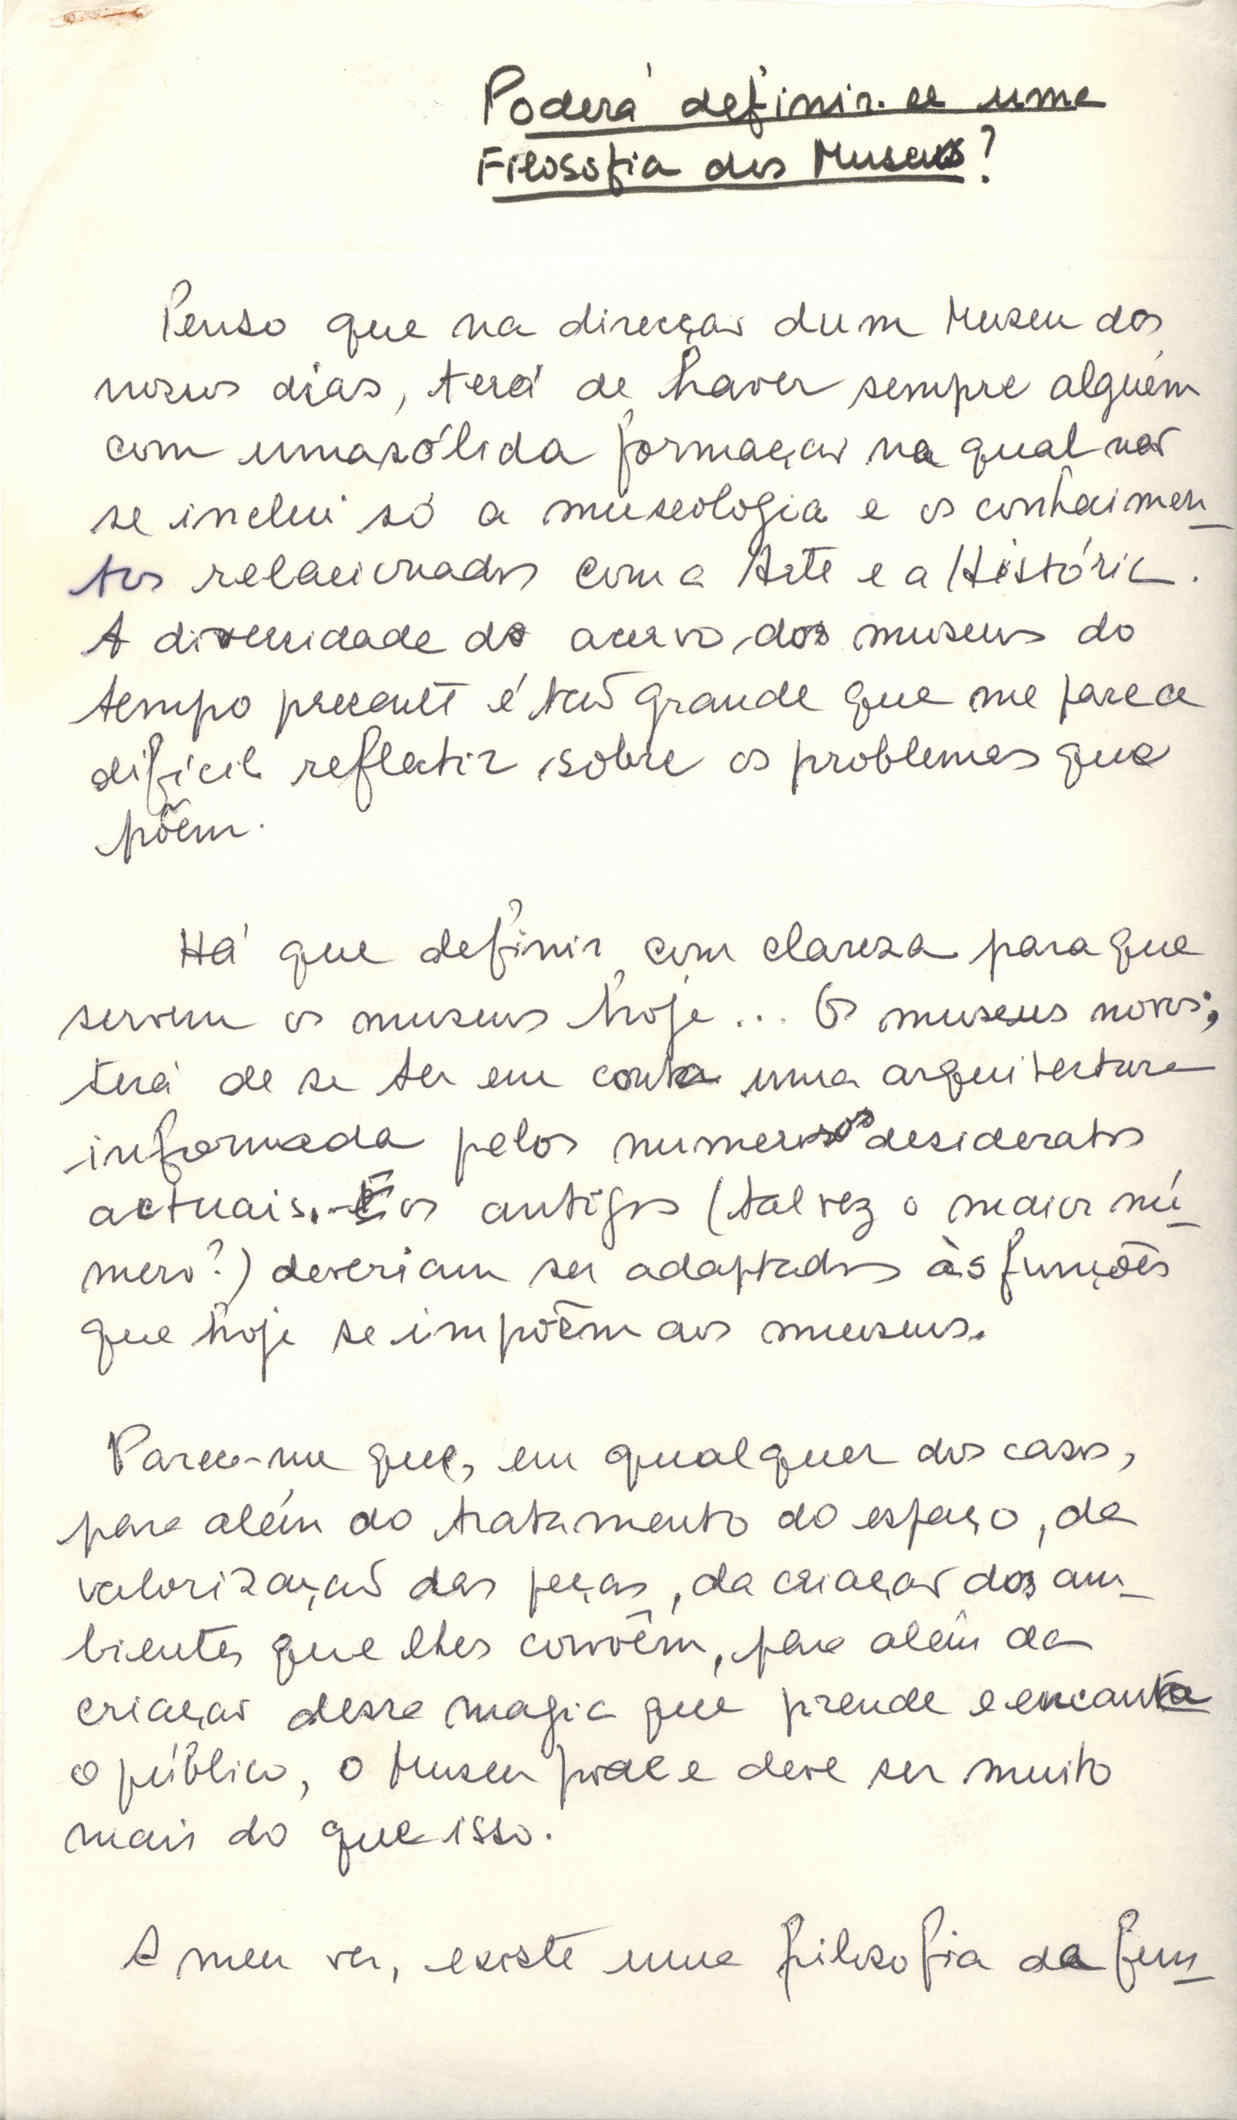 Poderá definir-se uma
Filosofia dos Museus?
Penso que na direcção dum Museu dos
nossos dias, terá de haver sempre alguém
com uma sólida formação na qual não
se inclui só a museologia e os conhecimen_
tos relacionados com a Arte e a História.
A diversidade do acervo dos museus do
tempo presente é tão grande que me parece
difícil reflectir sobre os problemas que
põem.
Há que definir com clareza para que
servem os museus hoje... Os museus novos;
terá de se ter em conta uma arquitectura
informada pelos numerosos desideratos
actuais. E os antigos (talvez o maior nú_
mero?) deveriam ser adaptados às funções
que hoje se impõem aos museus.
Parece-me que, em qualquer dos casos,
para além do tratamento do espaço, da
valorização das peças, da criação dos am_
bientes que lhes convêm, para além da
criação dessa magia que prende e encanta
o público, o Museu pode e deve ser muito
mais do que isso.
A meu ver, existe uma filosofia da fun_